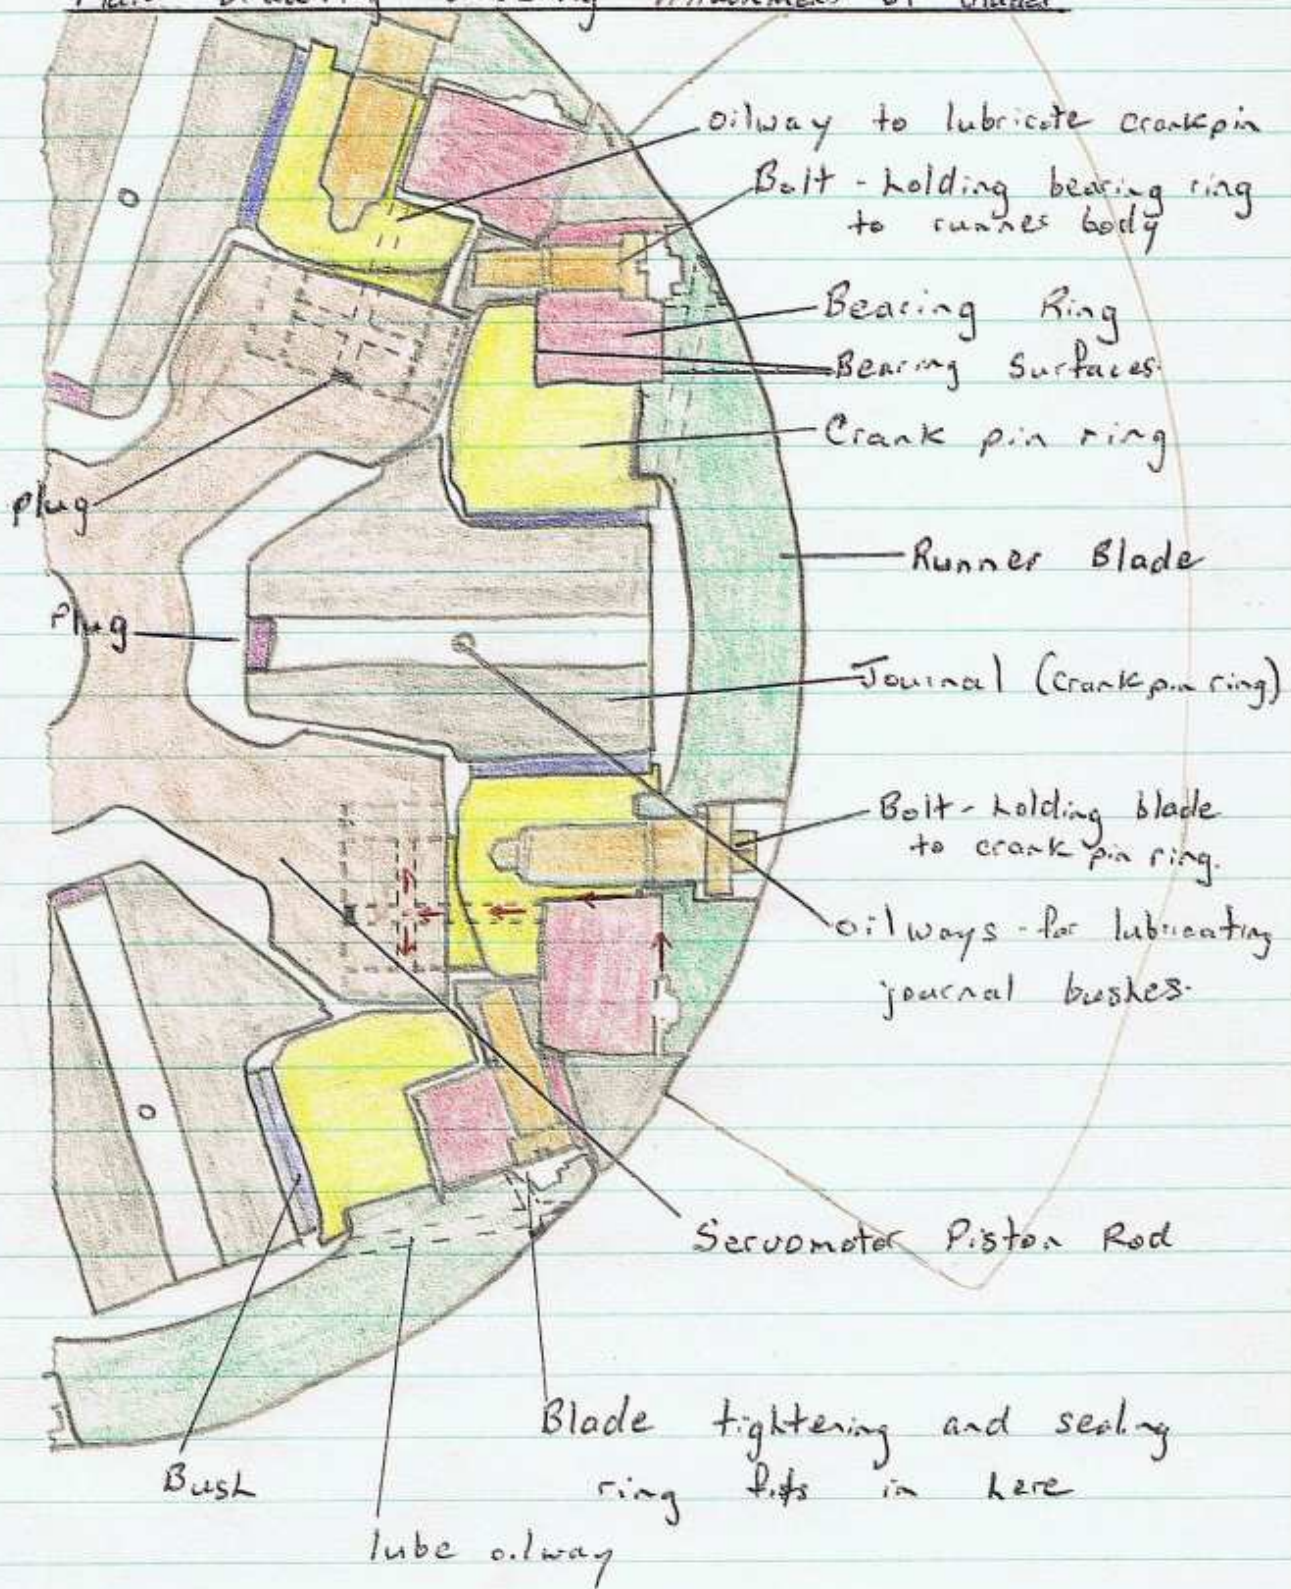 oilway to lubricate crankpin
Bolt - holding bearing ring
to runner body
Bearing Ring
Bearing Surfaces.
Crank pin ring
plug
Runner Blade
Plug
Journal (crank pin ring)
Bolt - holding blade
to crank pin ring.
oilways - for lubricating
journal bushes.
Servomotor Piston Rod
Blade tightening and sealing
ring fits in here
Bush
lube oilway